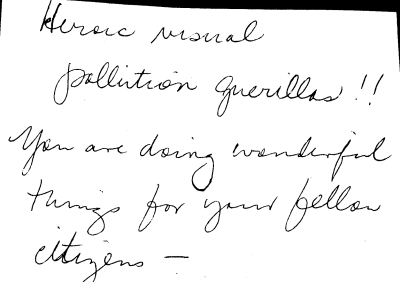 Heroic visual
pollution guerillas!!
You are doing wonderful
things for your fellow
citizens —